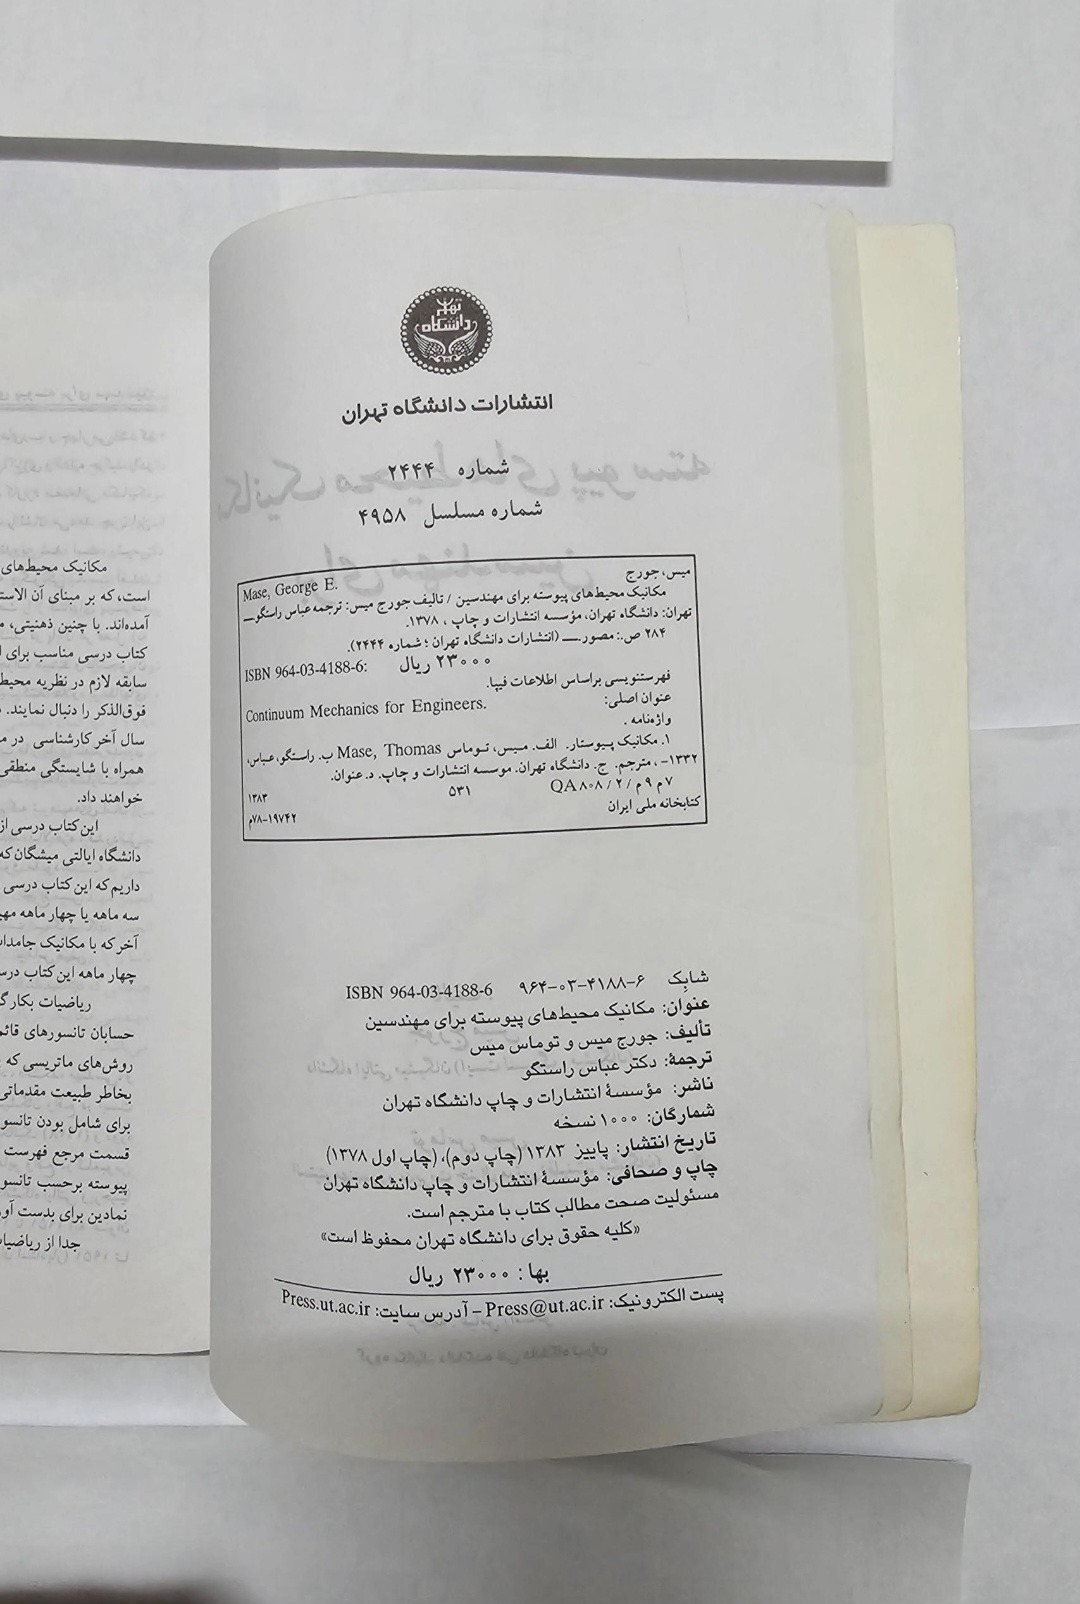 دانشگاه تهران
انتشارات دانشگاه تهران
شماره ۲۴۴۴
شماره مسلسل ۴۹۵۸
میس، جورج Mase, George E.
مکانیک محیط‌های پیوسته برای مهندسین / تالیف جورج میس: ترجمه عباس راستگو.ــ
تهران: دانشگاه تهران، مؤسسه انتشارات و چاپ ، ۱۳۷۸.
۲۸۴ ص.: مصور.ــ (انتشارات دانشگاه تهران ؛ شماره ۲۴۴۴).
ISBN 964-03-4188-6: ۲۳۰۰۰ ریال
فهرستنویسی براساس اطلاعات فیپا.
عنوان اصلی: Continuum Mechanics for Engineers.
واژه‌نامه .
۱. مکانیک پیوستار. الف. میس، توماس Mase, Thomas ب. راستگو، عباس،
۱۳۳۲- ، مترجم. ج. دانشگاه تهران. موسسه انتشارات و چاپ. د. عنوان.
۷م ۹م / ۲ / QA ۸۰۸ ۵۳۱ ۱۳۸۳
کتابخانه ملی ایران ۱۹۷۴۲-۷۸م
شابک ۶-۴۱۸۸-۰۳-۹۶۴ ISBN 964-03-4188-6
عنوان: مکانیک محیط‌های پیوسته برای مهندسین
تألیف: جورج میس و توماس میس
ترجمهٔ: دکتر عباس راستگو
ناشر: مؤسسهٔ انتشارات و چاپ دانشگاه تهران
شمارگان: ۱۰۰۰ نسخه
تاریخ انتشار: پاییز ۱۳۸۳ (چاپ دوم)، (چاپ اول ۱۳۷۸)
چاپ و صحافی: مؤسسهٔ انتشارات و چاپ دانشگاه تهران
مسئولیت صحت مطالب کتاب با مترجم است.
«کلیه حقوق برای دانشگاه تهران محفوظ است»
بها : ۲۳۰۰۰ ریال
پست الکترونیک: Press@ut.ac.ir – آدرس سایت: Press.ut.ac.ir
مکانیک محیط‌های
است، که بر مبنای آن
آمده‌اند. با چنین ذهنیتی،
کتاب درسی مناسب برای
سابقه لازم در نظریه
فوق‌الذکر را دنبال نمایند.
سال آخر کارشناسی در
همراه با شایستگی منطقی
خواهند داد.
این کتاب درسی از
دانشگاه ایالتی میشگان که
داریم که این کتاب درسی
سه ماهه یا چهار ماهه
آخر که با مکانیک
چهار ماهه این کتاب
ریاضیات بکار
حسابان تانسورهای
روش‌های ماتریسی که
بخاطر طبیعت مقدماتی
برای شامل بودن
قسمت مرجع فهرست
پیوسته برحسب
نمادین برای بدست
جدا از